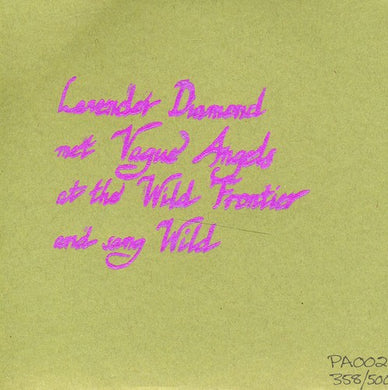 Lavender Diamond
met Vague Angels
at the Wild Frontier
and sang Wild
PA002
358/500